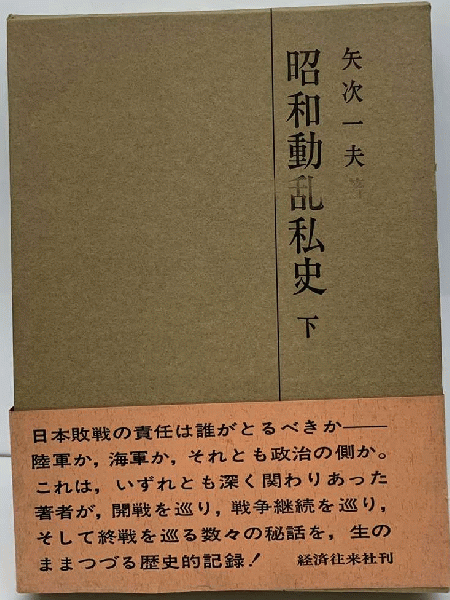 矢次一夫著
昭和動乱私史 下
日本敗戦の責任は誰がとるべきか——
陸軍か，海軍か，それとも政治の側か。
これは，いずれとも深く関わりあった
著者が，開戦を巡り，戦争継続を巡り，
そして終戦を巡る数々の秘話を，生の
ままつづる歴史的記録！ 経済往来社刊